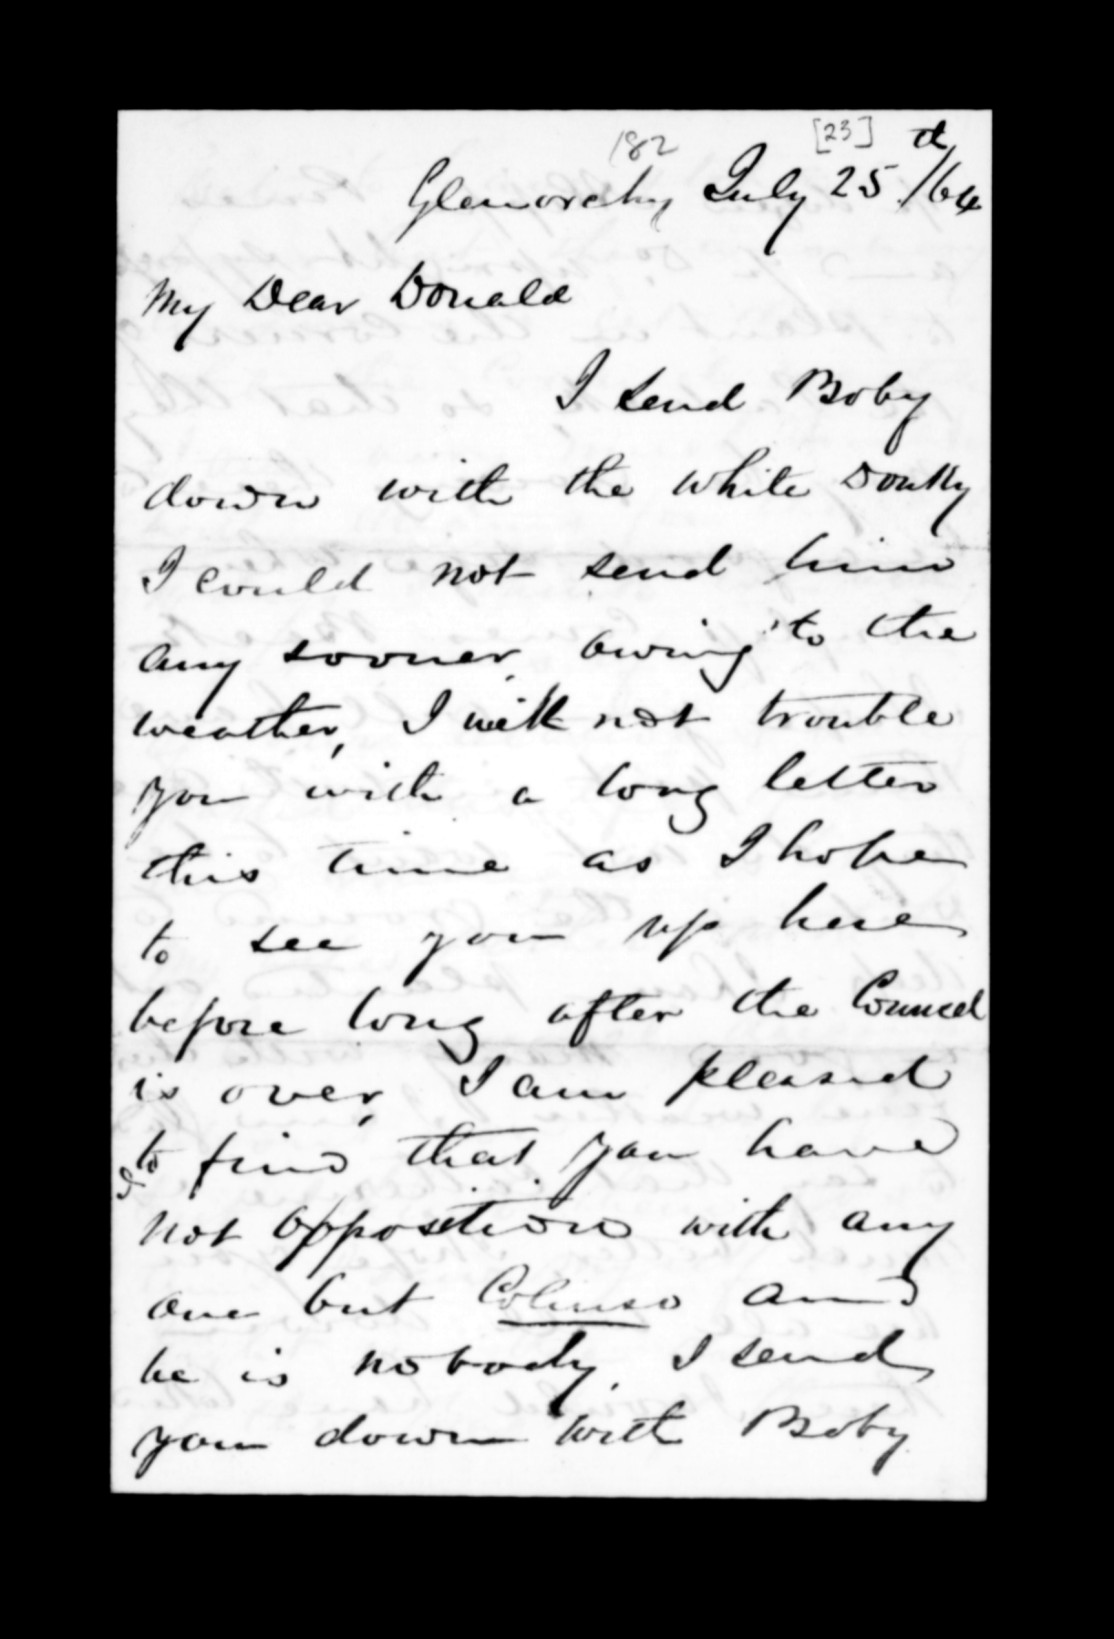 182 [23]
Glenorchy July 25th/64
My Dear Donald
I send Boby
down with the white Donky
I could not send him
any sooner, owing to the
weather, I will not trouble
you with a long letter
this time as I hope
to see you up here
before long after the Council
is over, I am pleased
to find that you have
not opposition with any
one but Colenso and
he is nobody, I send
you down with Boby